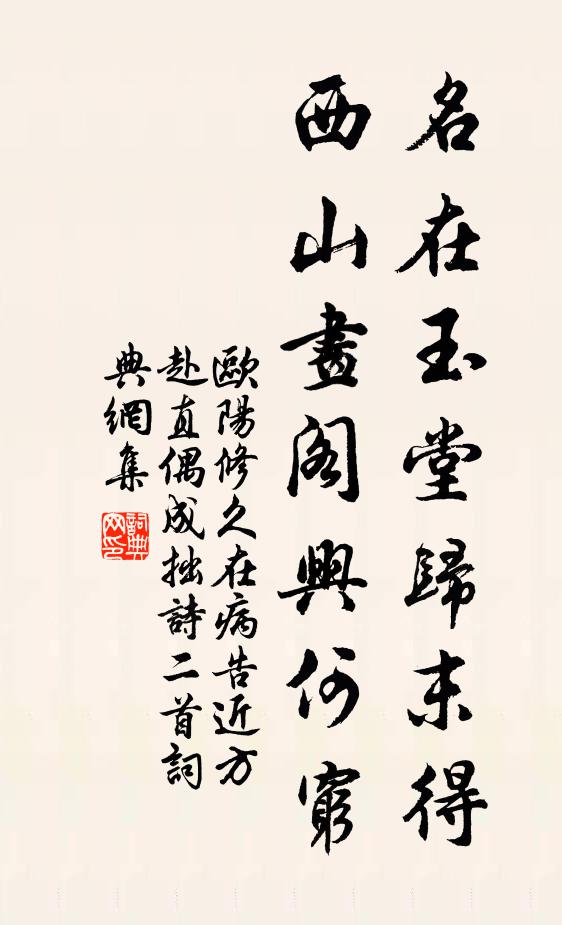 名在玉堂歸未得
西山畫閣興何窮
歐陽修久在病告近方
赴直偶成拙詩二首詞
典網集
詞典網印